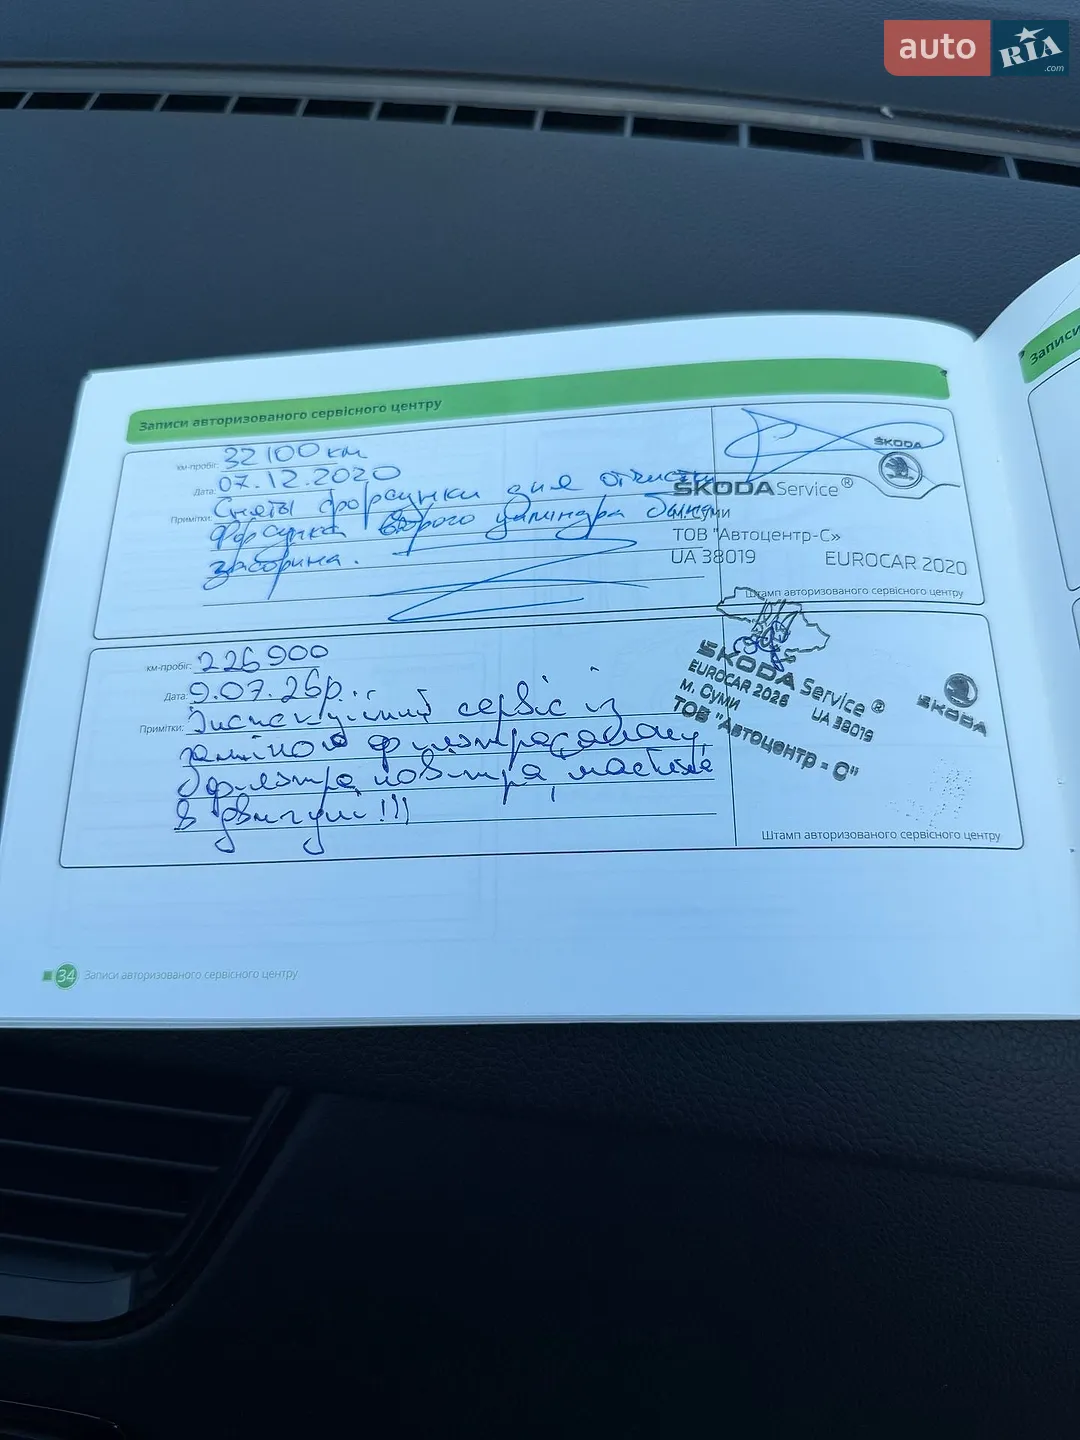 auto RIA.com
Записи авторизованого сервісного центру
Записи
км-пробіг: 32100 км
Дата: 07.12.2020
Примітки: Сняты форсунки для отчистки
Форсунка второго цилиндра была
засорина.
ŠKODA
ŠKODA Service®
м. Суми
ТОВ "Автоцентр-С»
UA 38019 EUROCAR 2020
Штамп авторизованого сервісного центру
км-пробіг: 226900
Дата: 9.07.26р.
Примітки: Інспекційний сервіс із
заміною фільтра салону,
фільтра повітря, мастила
в двигуні!!!
ŠKODA Service®
EUROCAR 2026 UA 38019
м. Суми
ТОВ "Автоцентр - С"
ŠKODA
Штамп авторизованого сервісного центру
34 Записи авторизованого сервісного центру